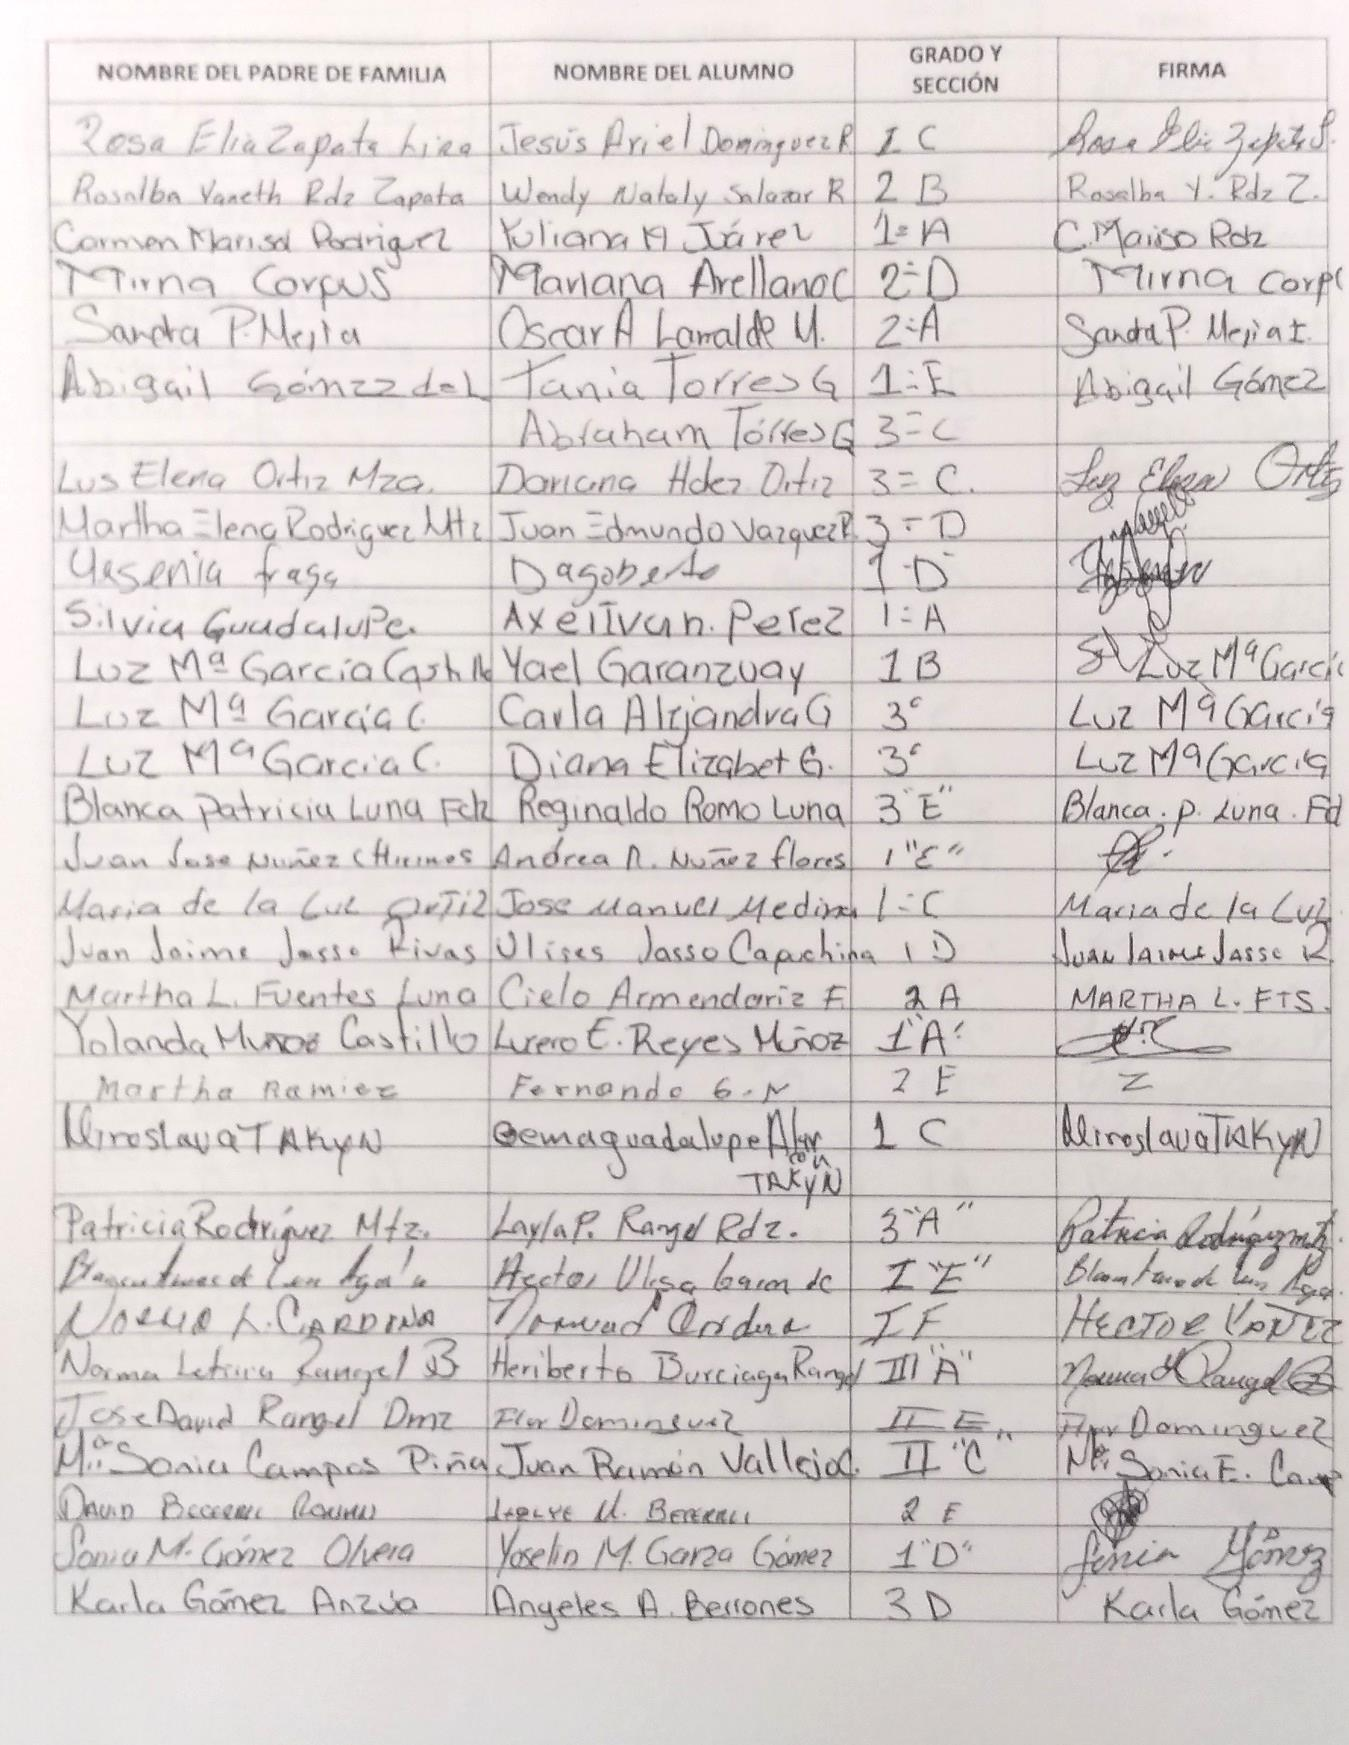 NOMBRE DEL PADRE DE FAMILIA NOMBRE DEL ALUMNO GRADO Y SECCIÓN FIRMA
Rosa Elia Zapata Lira Jesús Ariel Dominguez R 1 C Rosa Elia Zapata L.
Rosalba Yaneth Rdz Zapata Wendy Nataly Salazar R 2 B Rosalba Y. Rdz Z.
Carmen Marisol Rodriguez Yuliana M Juárez 1= A C. Rdz
Mirna Corpus Mariana Arellano C 2= D Mirna Corp
Sandra P. Mejia Oscar A Larralde M. 2= A Sandra P. Mejia I.
Abigail Gómez de L Tania Torres G 1= E Abigail Gómez
Abraham Torres G 3= C
Lus Elena Ortiz Mza. Dariana Hdez Ortiz 3= C. Luz Elena Ortiz
Martha Elena Rodriguez Mtz Juan Edmundo Vazquez R. 3= D
Yesenia fraga Dagoberto 1 D
Silvia Guadalupe. Axel Ivan. Perez 1= A
Luz Mª García Castillo Yael Garanzuay 1 B Luz Mª García
Luz Mª García C. Carla Alejandra G 3° Luz Mª García
Luz Mª Garcia C. Diana Elizabet G. 3° Luz Mª García
Blanca Patricia Luna Fdz Reginaldo Romo Luna 3 "E" Blanca. P. Luna. Fd
Juan Jose Nuñez Chirinos Andrea N. Nuñez flores 1 "E"
Maria de la Luz Ortiz Jose Manuel Medina 1= C Maria de la Luz
Juan Jaime Jasso Rivas Ulises Jasso Capuchina 1 D Juan Jaime Jasso R
Martha L. Fuentes Luna Cielo Armendariz F. 2 A MARTHA L. FTS.
Yolanda Muñoz Castillo Lucero E. Reyes Muñoz 1 "A"
Martha Ramiez Fernando G. N 2 E Z
Miroslava TAKYN Gemaguadalupe 1 C Miroslava TAKYN
TAKYN
Patricia Rodríguez Mtz. Layla P. Rangel Rdz. 3 "A" Patricia Rodríguez Mtz.
Hector I "E"
L. CARDINA I F HECTOR YAÑEZ
Norma Leticia Rangel B Heriberto Burciaga Rangel III "A" Norma L Rangel B
Jose David Rangel Dmz Flor Dominguez II E Flor Dominguez
Mª Sonia Campos Piña Juan Ramón Vallejo C. II "C" Mª Sonia E. Camp
David Becerril M. Becerril 2 E
Sonia M. Gómez Olvera Yoselin M. Garza Gómez 1 "D" Sonia Gómez
Karla Gómez Anzúa Angeles A. Berrones 3 D Karla Gómez